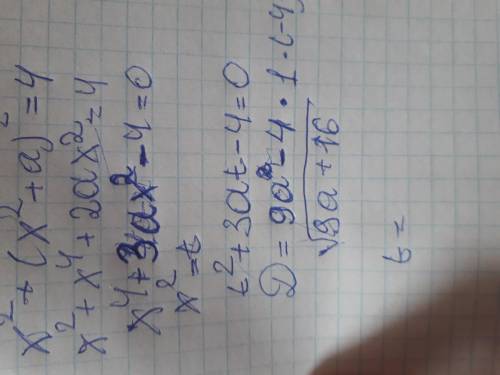 x² + (x² + a)² = 4
x² + x⁴ + 2ax² = 4
x⁴ + 3ax² - 4 = 0
x² = t
t² + 3at - 4 = 0
D = 9a² - 4 · 1 · (-4
√9a + 16
t =